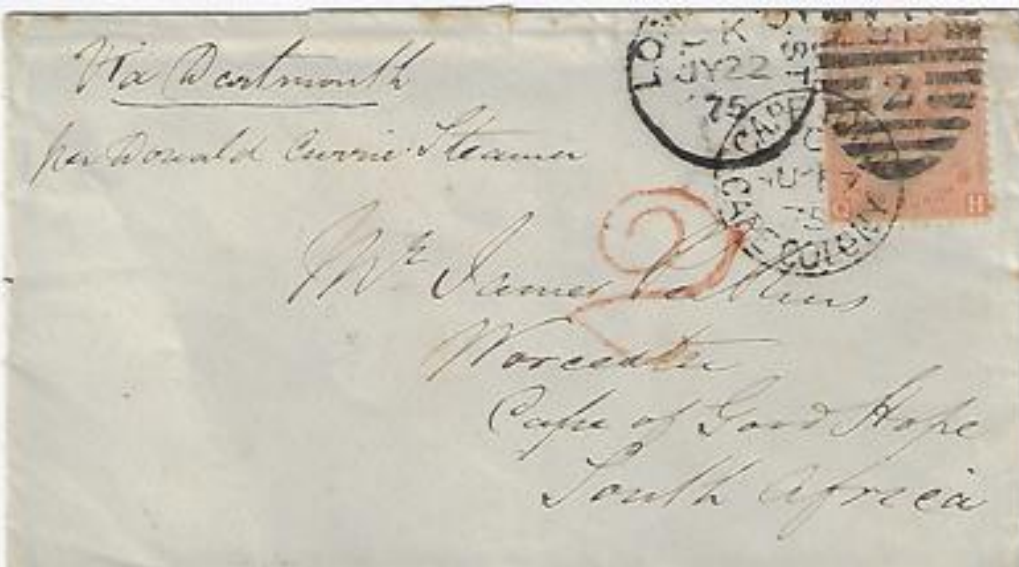 Via Dartmouth
per Donald Currie Steamer
LO
K
JY 22
75
ST
2
CAPE
75
CAPE COLONY
H
2
Mr. James
Worcester
Cape of Good Hope
South Africa